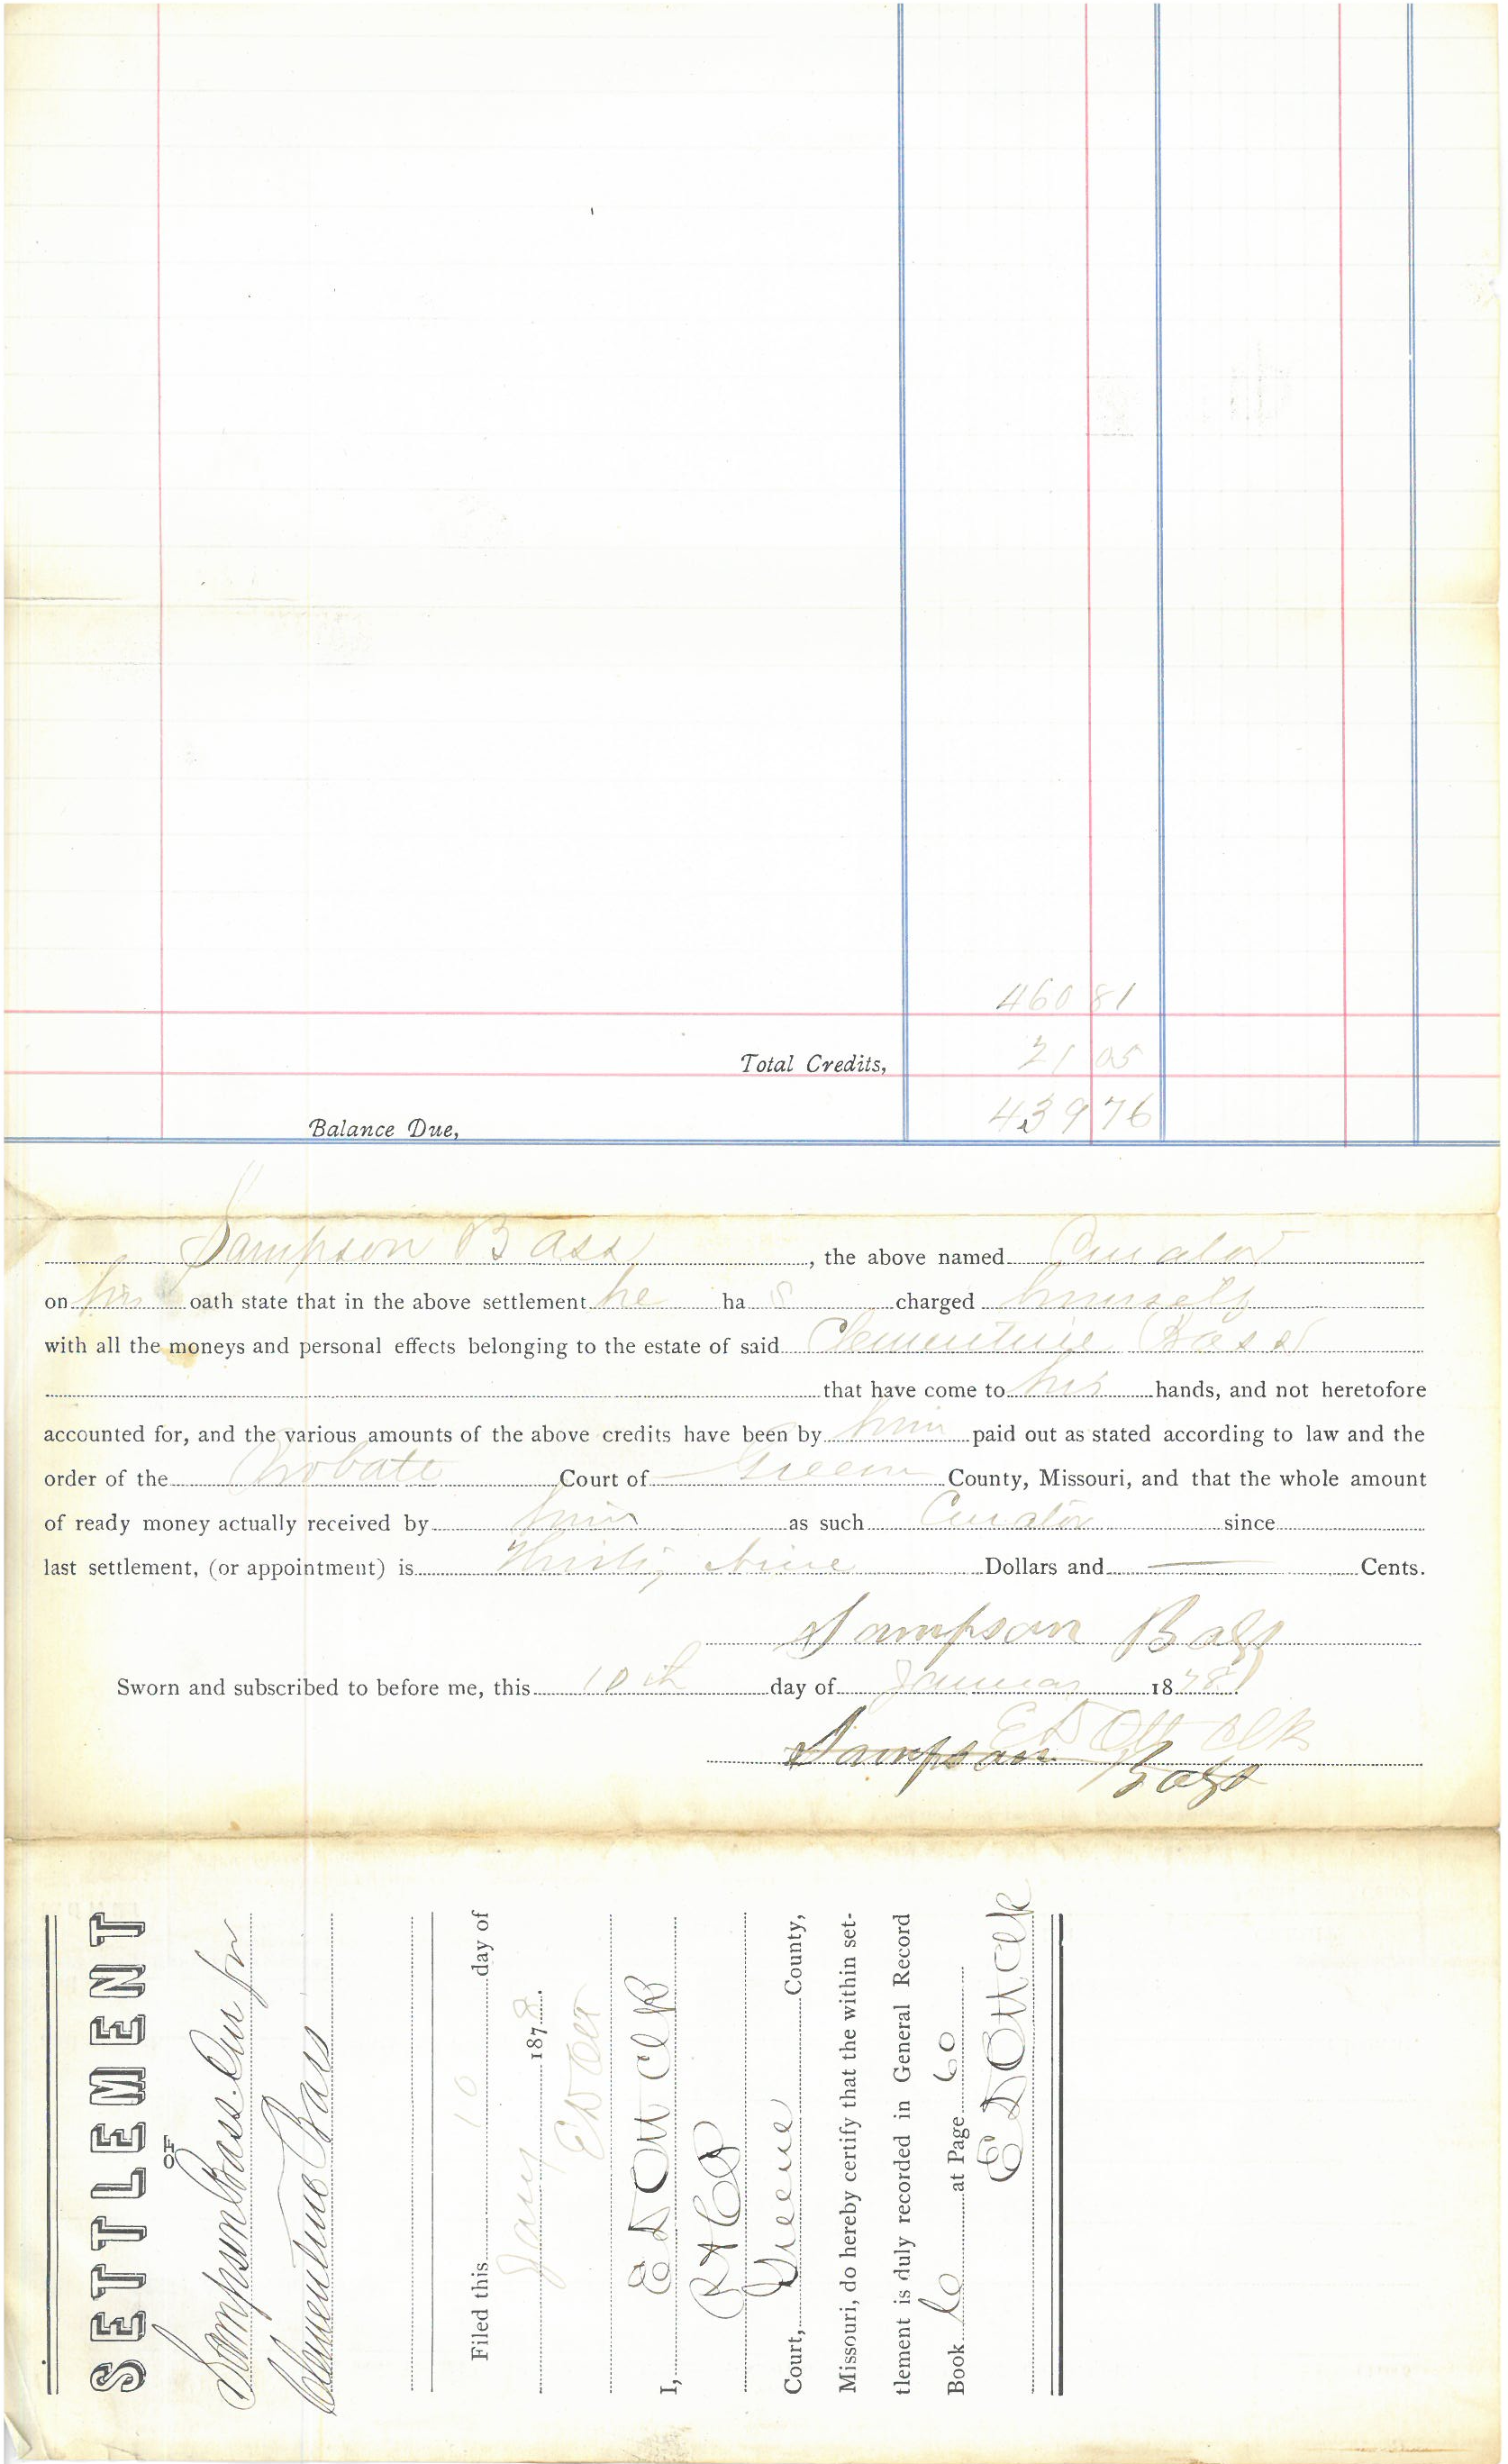 460 81
Total Credits, 21 05
Balance Due, 439 76
Sampson Bass, the above named Curator
on his oath state that in the above settlement he ha s charged himself
with all the moneys and personal effects belonging to the estate of said Clementine Bass
that have come to his hands, and not heretofore
accounted for, and the various amounts of the above credits have been by him paid out as stated according to law and the
order of the Probate Court of Green County, Missouri, and that the whole amount
of ready money actually received by him as such Curator since
last settlement, (or appointment) is Thirty Nine Dollars and — Cents.
Sampson Bass
Sworn and subscribed to before me, this 10th day of January 1878
E D Ott Clk
Sampson Bass
SETTLEMENT
OF
Sampson Bass Cur for
Clementine Bass
Filed this 10 day of
Jany 1878.
E D Ott
I, E D Ott Clk
Court, Greene County,
Missouri, do hereby certify that the within set-
tlement is duly recorded in General Record
Book at Page 60
E D Ott Clk